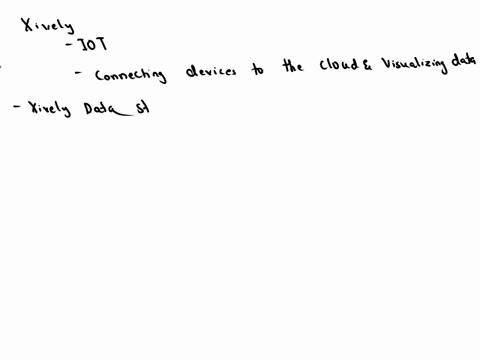 Xively
- IOT
- Connecting devices to the cloud & Visualizing data
- Xively Data st